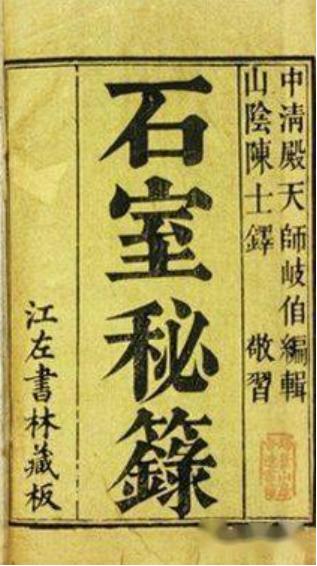 中清殿天師岐伯編輯
山陰陳士鐸 敬習
石室秘籙
江左書林藏板